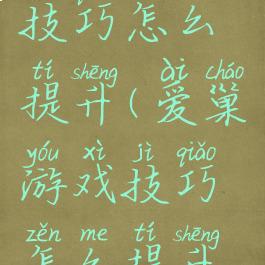 技巧怎么
tí shēng ài cháo
提升(爱巢
yóu xì jì qiǎo
游戏技巧
zěn me tí shēng
怎么提升